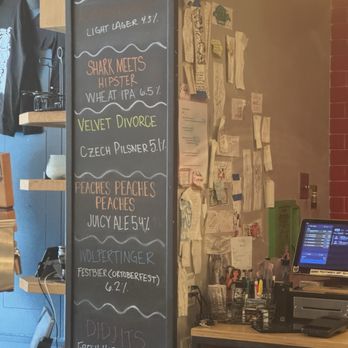 LIGHT LAGER 4.3%
SHARK MEETS
HIPSTER
WHEAT IPA 6.5%
VELVET DIVORCE
CZECH PILSNER 5.1%
PEACHES PEACHES
PEACHES
JUICY ALE 5.4%
WOLPERTINGER
FESTBIER (OKTOBERFEST)
6.2%
DIDJITS